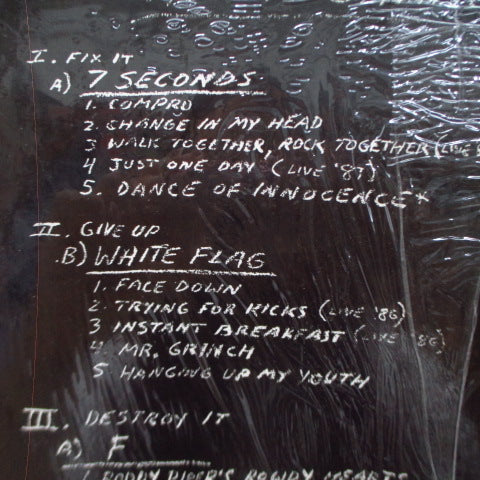 I. FIX IT
A) 7 SECONDS
1. COMPRO
2. CHANGE IN MY HEAD
3 WALK TOGETHER, ROCK TOGETHER (LIVE
4 JUST ONE DAY (LIVE '87)
5. DANCE OF INNOCENCE*
II. GIVE UP
B) WHITE FLAG
1. FACE DOWN
2. TRYING FOR KICKS (LIVE '86)
3 INSTANT BREAKFAST (LIVE '86)
4. MR. GRINCH
5 HANGING UP MY YOUTH
III. DESTROY IT
A) F
1 RODDY PIPER'S ROWDY